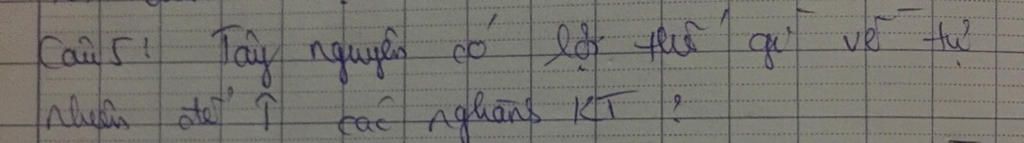 Câu 5: Tây nguyên có lợi thế gì về tự
nhiên để ↑ các nghành KT?